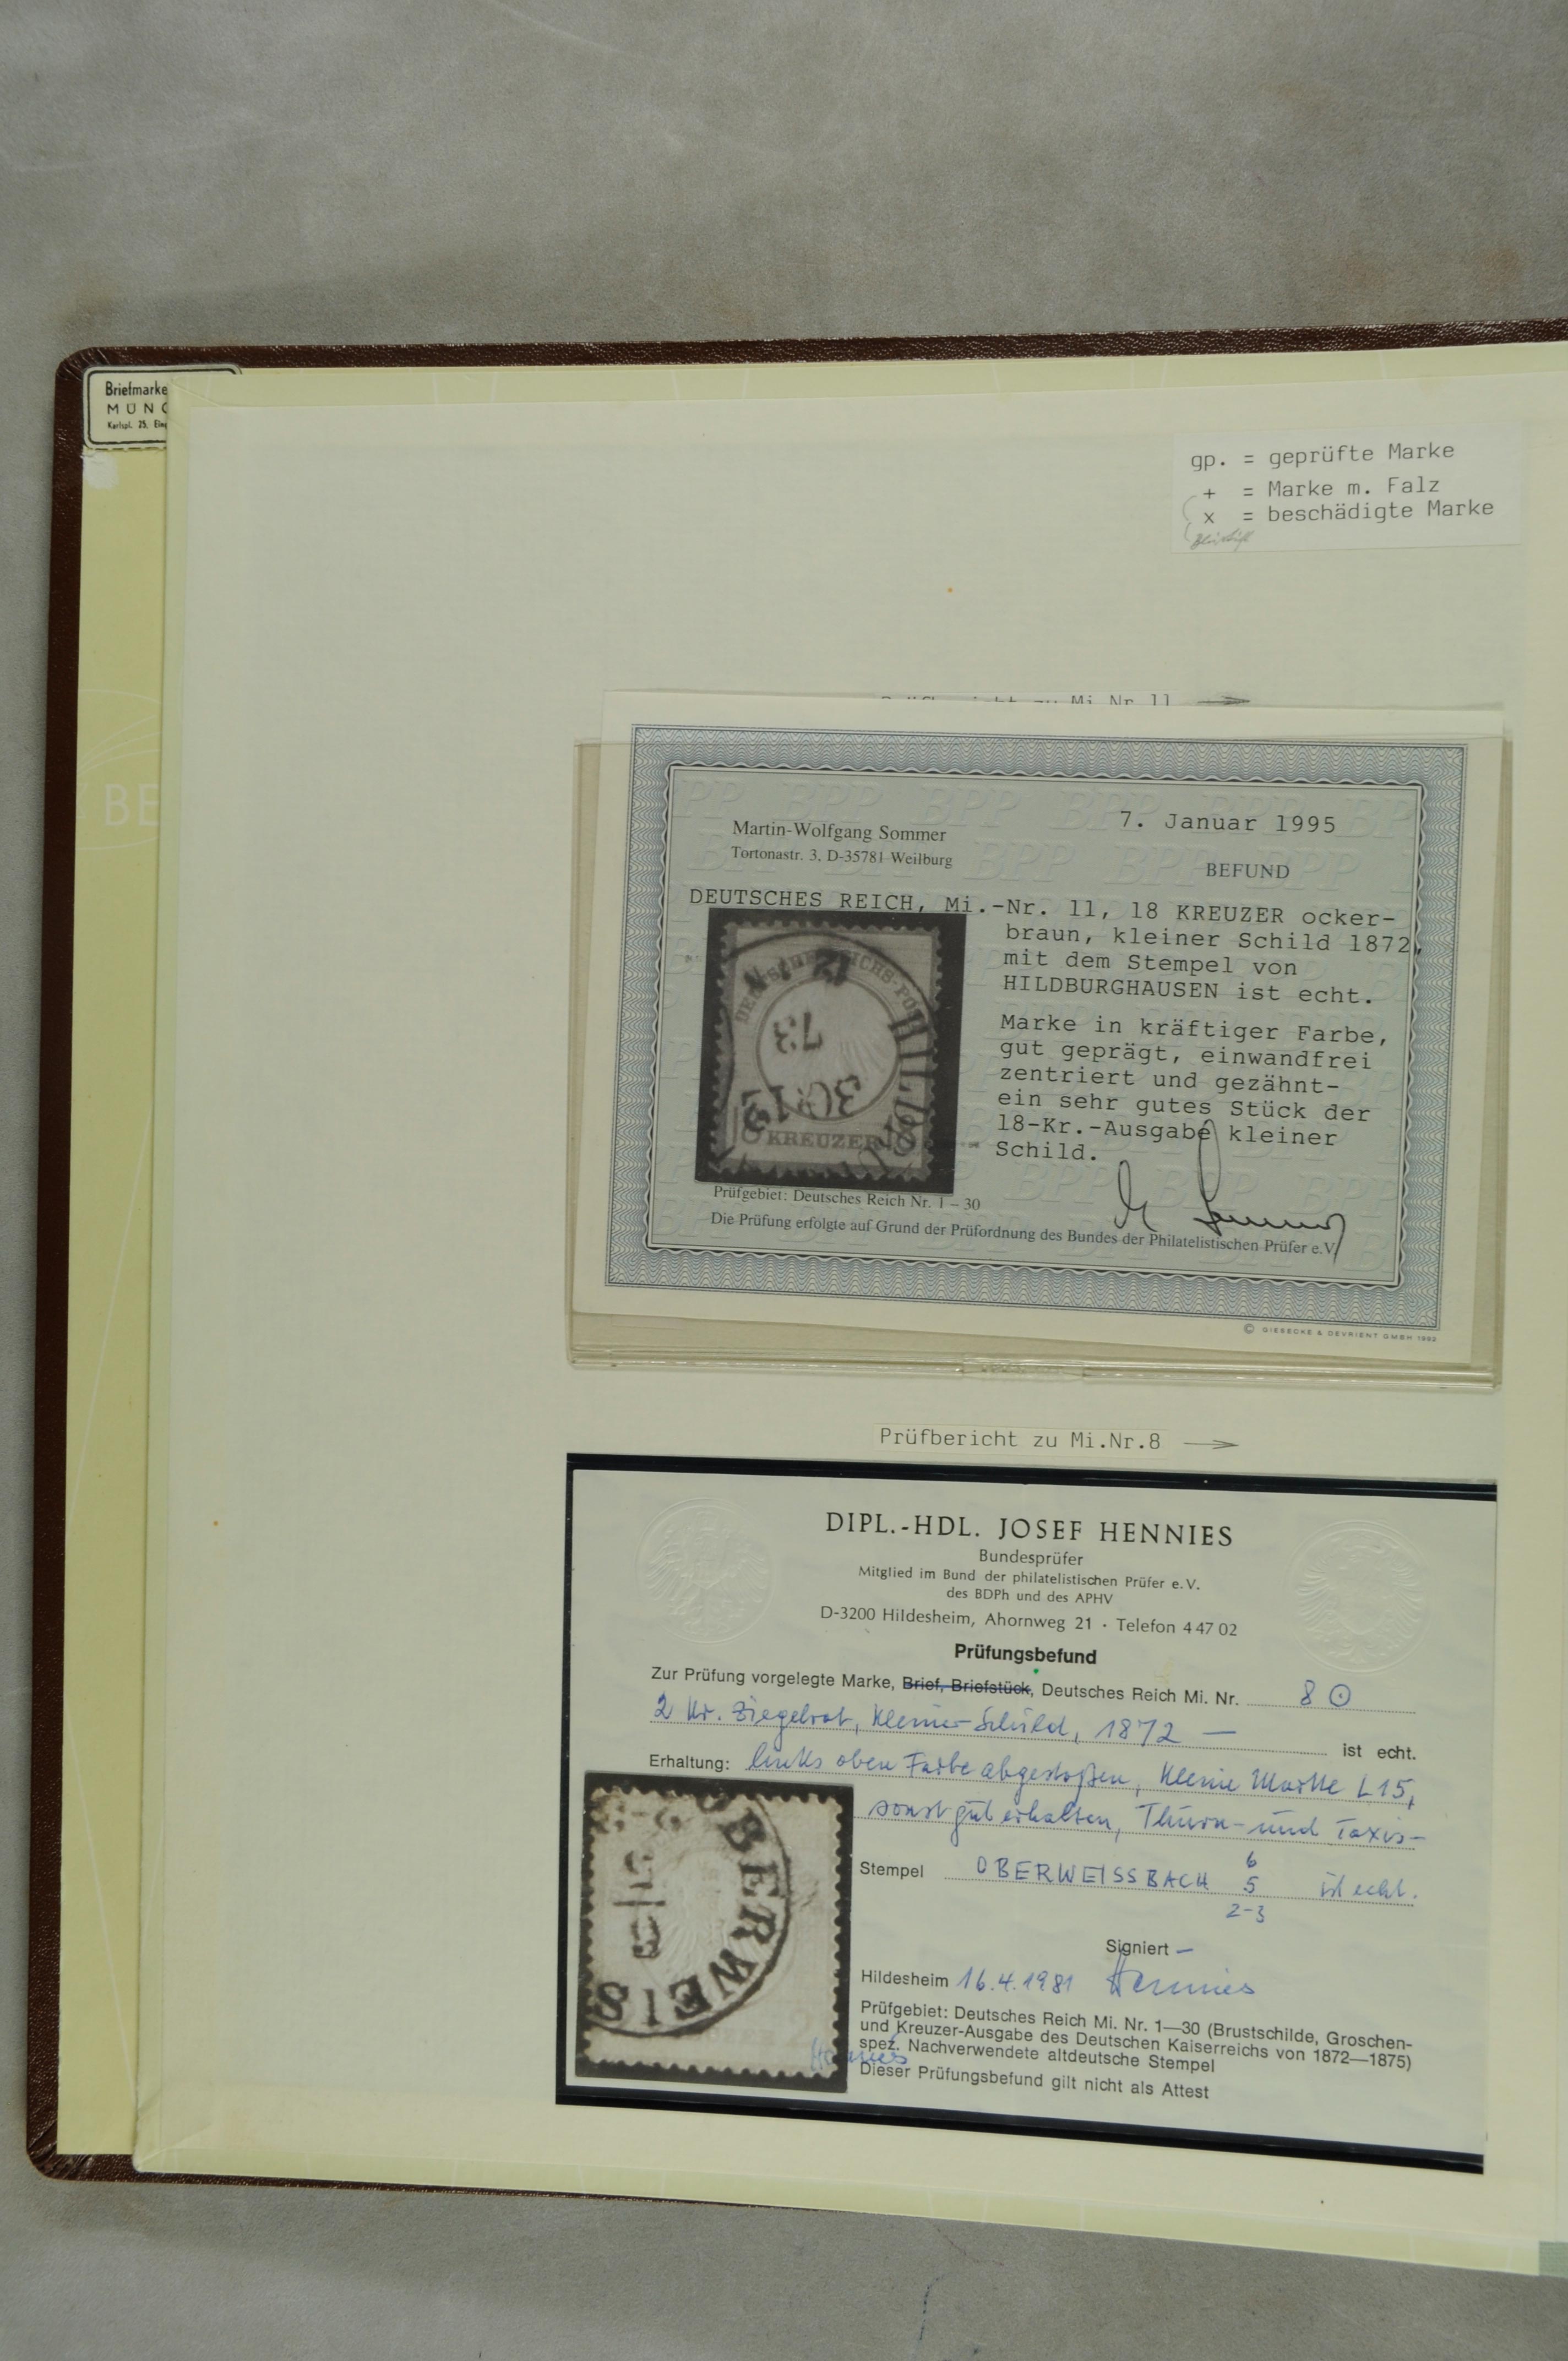 Briefmarke
MÜNC
Karlspl. 25, Eing
BE
gp. = geprüfte Marke
+ = Marke m. Falz
x = beschädigte Marke
zu Mi.Nr.11
Martin-Wolfgang Sommer
Tortonastr. 3, D-35781 Weilburg
7. Januar 1995
BEFUND
DEUTSCHES REICH, Mi.-Nr. 11, 18 KREUZER ocker-
braun, kleiner Schild 1872,
mit dem Stempel von
HILDBURGHAUSEN ist echt.
Marke in kräftiger Farbe,
gut geprägt, einwandfrei
zentriert und gezähnt-
ein sehr gutes Stück der
18-Kr.-Ausgabe kleiner
Schild.
73
KREUZER
Prüfgebiet: Deutsches Reich Nr. 1 – 30
Die Prüfung erfolgte auf Grund der Prüfordnung des Bundes der Philatelistischen Prüfer e.V.
© GIESECKE & DEVRIENT GMBH 1993
Prüfbericht zu Mi.Nr.8
DIPL.-HDL. JOSEF HENNIES
Bundesprüfer
Mitglied im Bund der philatelistischen Prüfer e. V.
des BDPh und des APHV
D-3200 Hildesheim, Ahornweg 21 · Telefon 4 47 02
Prüfungsbefund
Zur Prüfung vorgelegte Marke, Brief, Briefstück, Deutsches Reich Mi. Nr. 8 ⊙
2 Kr. Ziegelrot, kleiner Schild, 1872 — ist echt.
Erhaltung: links oben Farbe abgestoßen, kleine Marke L15,
sonst gut erhalten, Thurn- und Taxis-
Stempel OBERWEISSBACH 6 5 2-3 ist echt.
BERWEIS
Signiert —
Hildesheim 16.4.1981 Hennies
Prüfgebiet: Deutsches Reich Mi. Nr. 1—30 (Brustschilde, Groschen-
und Kreuzer-Ausgabe des Deutschen Kaiserreichs von 1872—1875)
spez. Nachverwendete altdeutsche Stempel
Dieser Prüfungsbefund gilt nicht als Attest
Hennies